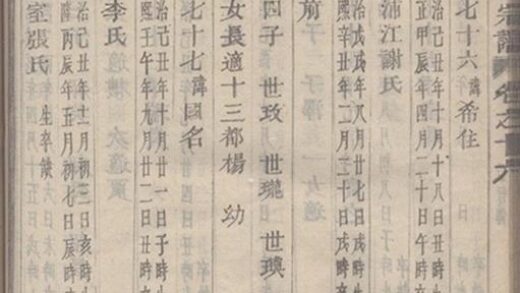 宗譜 卷之十六
七十六 諱 希住
治己丑年十月十八日丑時
正甲辰年四月二十日午時
沛江謝氏
治戊戌年八月廿七日戌時
熙辛丑年二月三十日戌時
前
四子 世玫 世瓏 世璵
女長適十三都楊 幼
七十七 諱 國名
治己丑年十一月廿一日子時
熙壬午年九月廿二日丑時
李氏
治己丑年十二月初三日亥時
隆丙辰年五月初七日辰時
室張氏 生卒